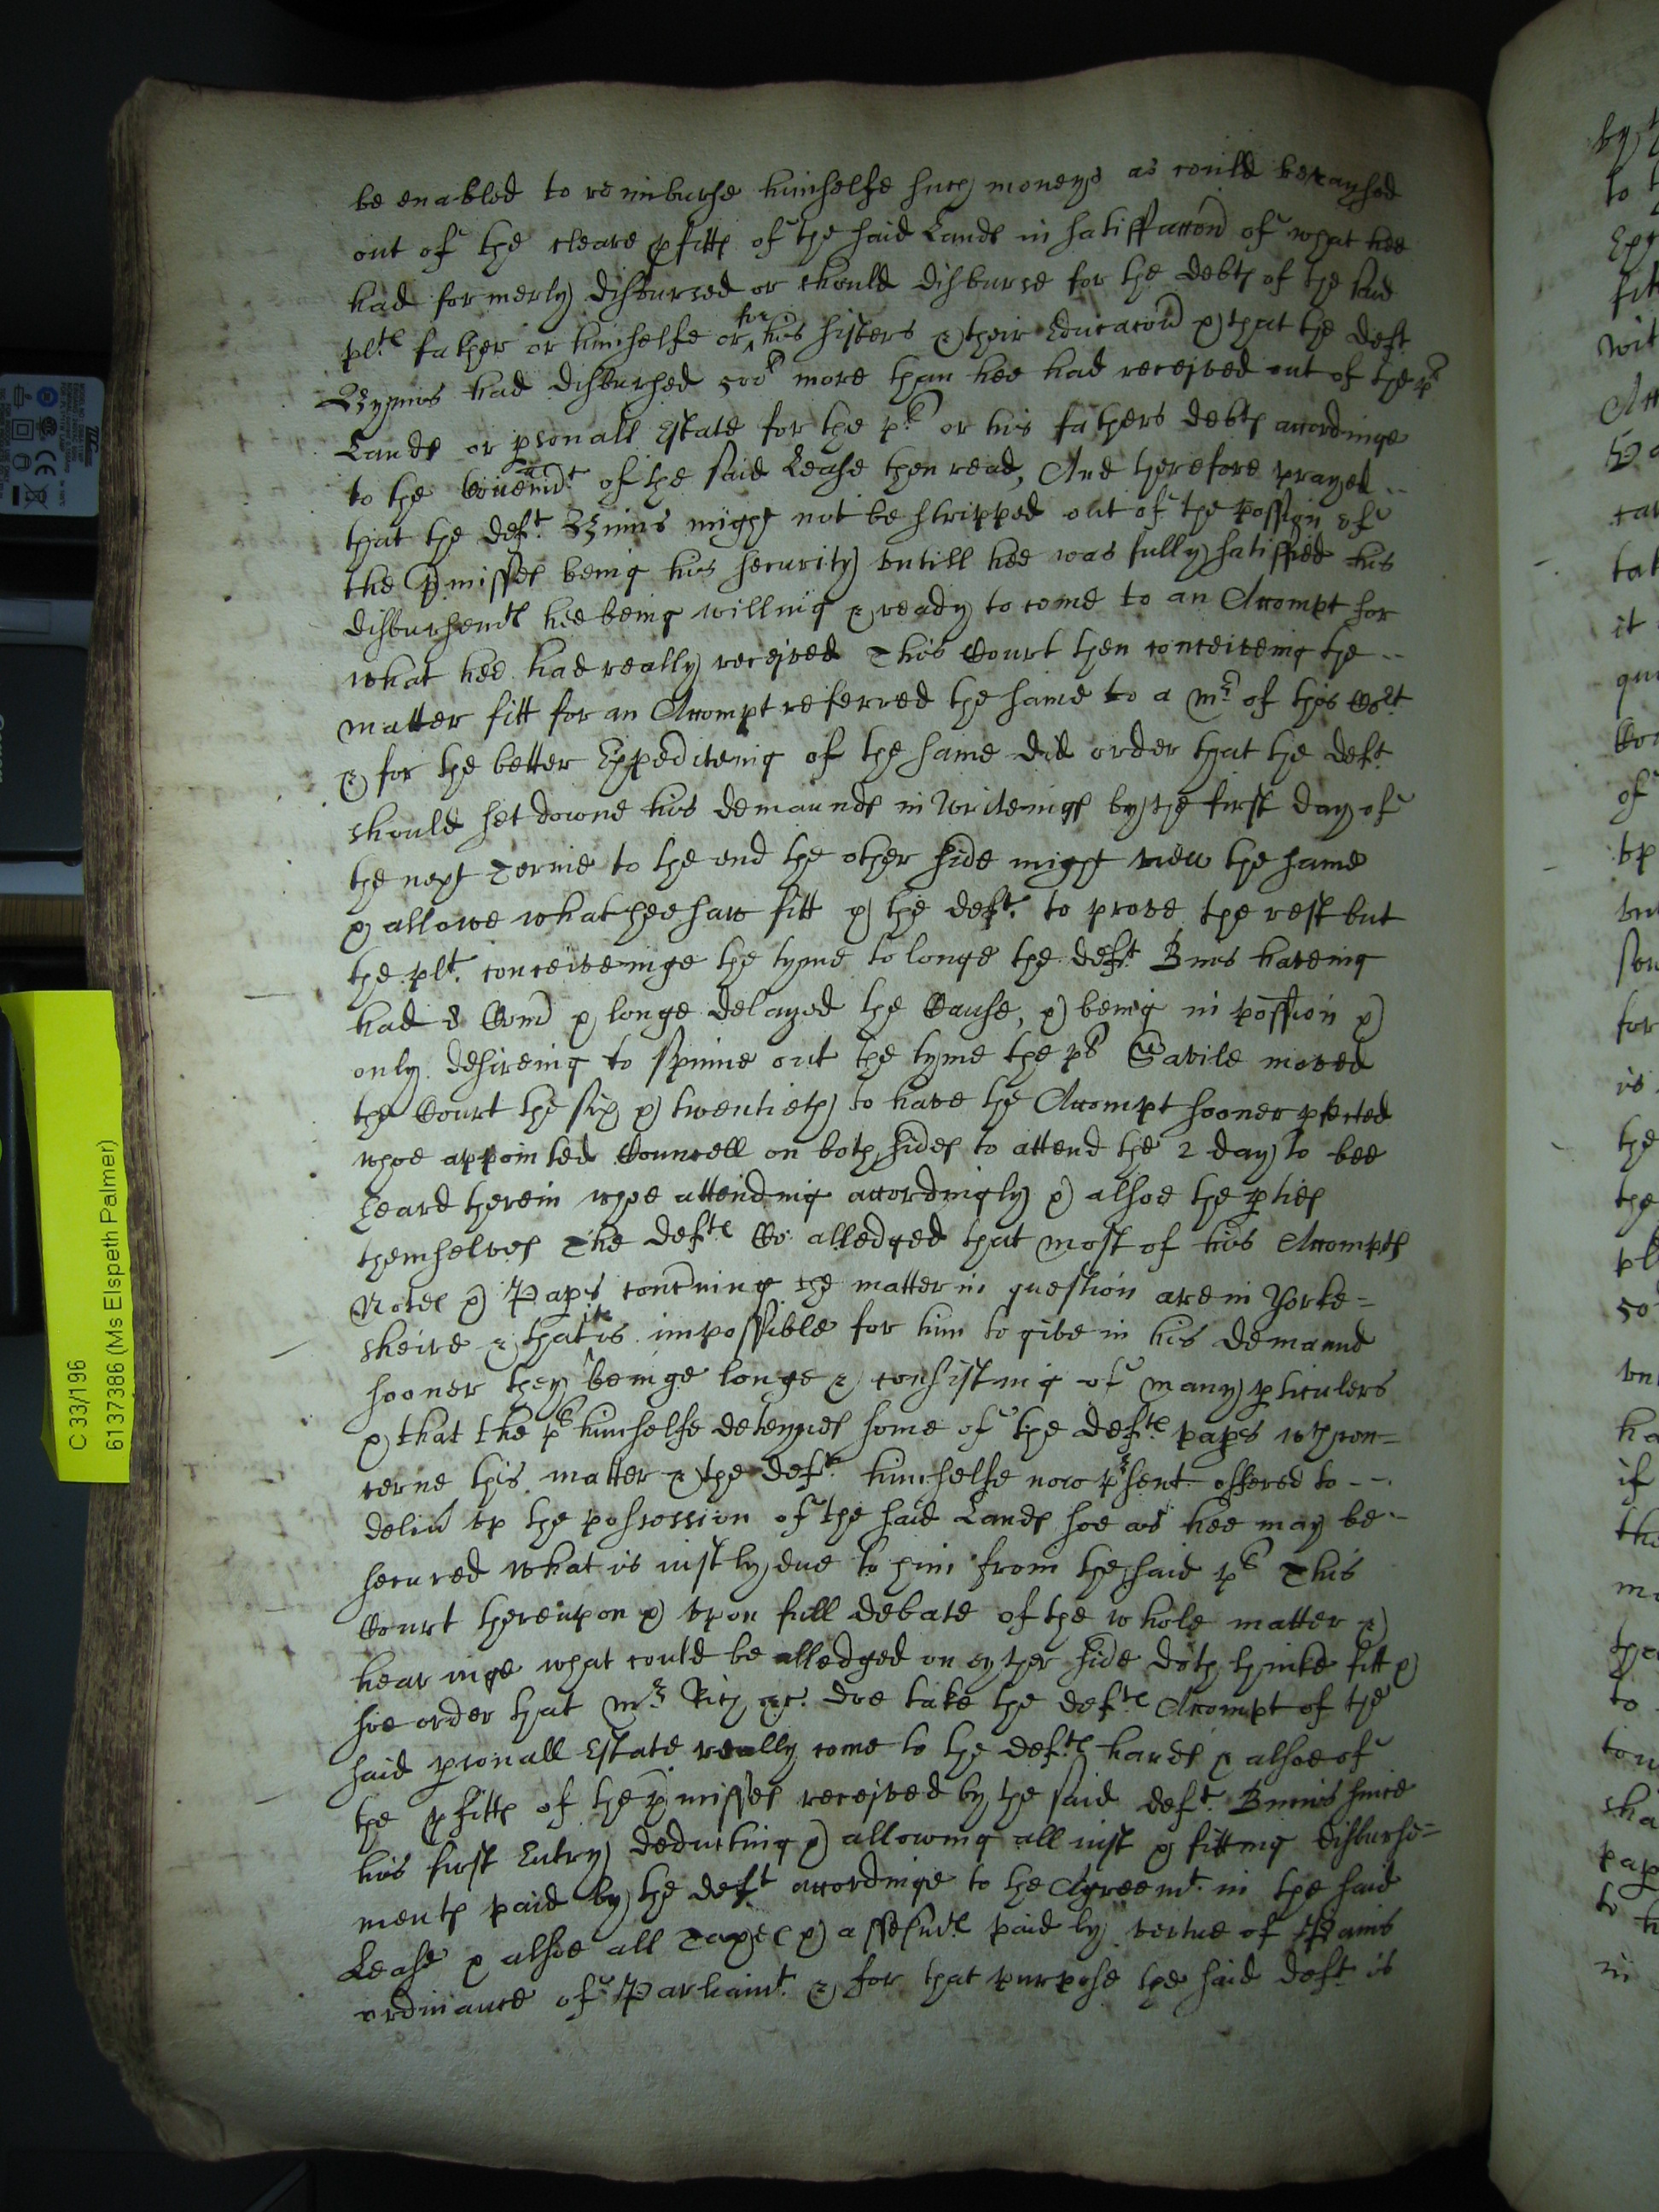 be enabled to reimburse himselfe such moneys as could be raysed
out of the cleare pfitts of the said Lands in satisfaccon of what hee
had formerly disbursed or should disburse for the debts of the said
plts father or himselfe or for his sisters & their Educacon & that the deft
had disbursed 500l more than hee had received out of the
Lands or psonall Estate for the pl or his fathers debts accordinge
to the Covenants of the said Lease then read, And therefore prayed --
that the deft. might not be stripped out of the possion of
the pmisses being his security untill hee was fully satisfied his
disbursemts hee being willing & ready to come to an Accompt for
what hee had really received This Court then conceiveing the --
matter fitt for an Accompt referred the same to a Mr of this Cort
& for the better Expediteing of the same did order that the deft
should set downe his demaunds in Writeings by the first day of
the next Terme to the end the other side might view the same
& allowe what hee saw fitt & the deft. to prove the rest but
the plt. conceiveinge the tyme to longe the deft. haveing
had Com & longe delayed the Cause, & being in possion &
only desireing to spinne out the tyme the pl Savile moved
the Court the six & twentieth to have the Accompt sooner pfected
whoe appointed Councell on both sides to attend the 2 day to bee
heard therein whoe attending accordingly & alsoe the pties
themselves The defts Co: alledged that most of his Accompts
Notes & Paps concning the matter in question are in Yorke=
sheire & that itt is impossible for him to give in his demaund
sooner they beinge longe & consisting of many pticulers
& that the pl himselfe deteynes some of the defts paps wch con=
cerne this matter & the deft. himselfe now psent offered to --
deliv up the possession of the said Lands soe as hee may be -
secured what is iustly due to him from the said pl This
Court thereupon & upon full debate of the whole matter &
hearinge what could be alledged on eyther side doth thinke fitt &
soe order that Mr Rich &c. doe take the defts Accompt of the
said psonall Estate really come to the defts hands & alsoe of
the pfitts of the pmisses received by the said deft. since
his first Entry deducting & allowing all iust & fitting disburse=
ments paid by the deft accordinge to the Agreemt. in the said
Lease & alsoe all Taxes & assessmts paid by vertue of
ordinance of Parliamt. & for that purpose the said deft is
C 33/196
6137386 (Ms Elspeth Palmer)